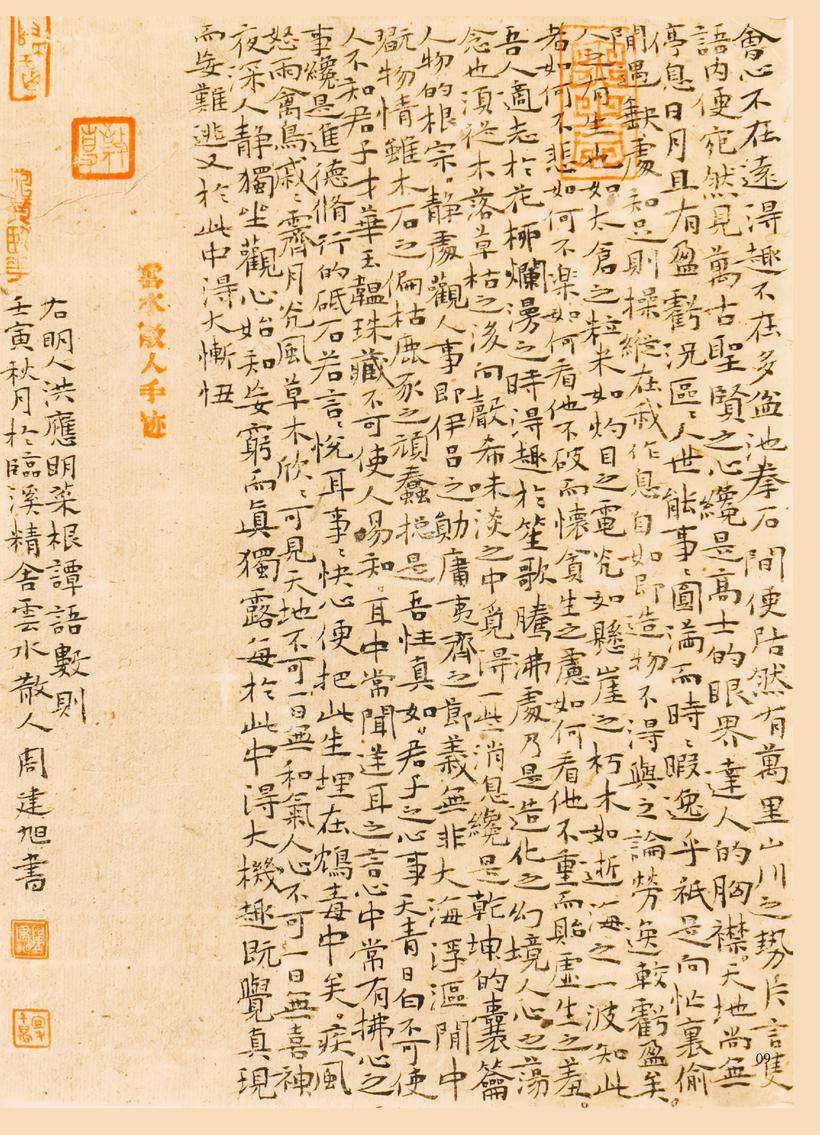 會心不在遠得趣不在多盆池拳石間便居然有萬里山川之勢片言隻
語內便宛然見萬古聖賢之心纔是高士的眼界達人的胸襟天地尚無
停息日月且有盈虧況區〻人世能事〻圓滿而時〻暇逸乎祇是向忙裏偷
閒遇缺處知足則操縱在我作息自如即造物不得與之論勞逸較虧盈矣
人之有生也如太倉之粒米如灼目之電光如懸崖之朽木如逝海之一波知此
者如何不悲如何不樂如何看他不破而懷貪生之慮如何看他不重而貽虛生之羞
吾人適志於花柳爛漫之時得趣於笙歌騰沸處乃是造化之幻境人心之蕩
念也須從木落草枯之後向聲希味淡之中覓得一些消息纔是乾坤的橐籥
人物的根宗靜處觀人事即伊呂之勛庸夷齊之節義無非大海浮漚閒中
翫物情雖木石之偏枯鹿豕之頑蠢總是吾性真如君子之心事天青日白不可使
人不知君子才華玉韞珠藏不可使人易知耳中常聞逆耳之言心中常有拂心之
事纔是進德脩行的砥石若言〻悅耳事〻快心便把此生埋在鴆毒中矣疾風
怒雨禽鳥戚〻霽月光風草木欣〻可見天地不可一日無和氣人心不可一日無喜神
夜深人靜獨坐觀心始知妄窮而真獨露每於此中得大機趣既覺真現
而妄難逃又於此中得大慚忸
雲水散人手迹
右明人洪應明菜根譚語數則
壬寅秋月於臨溪精舍雲水散人周建旭書